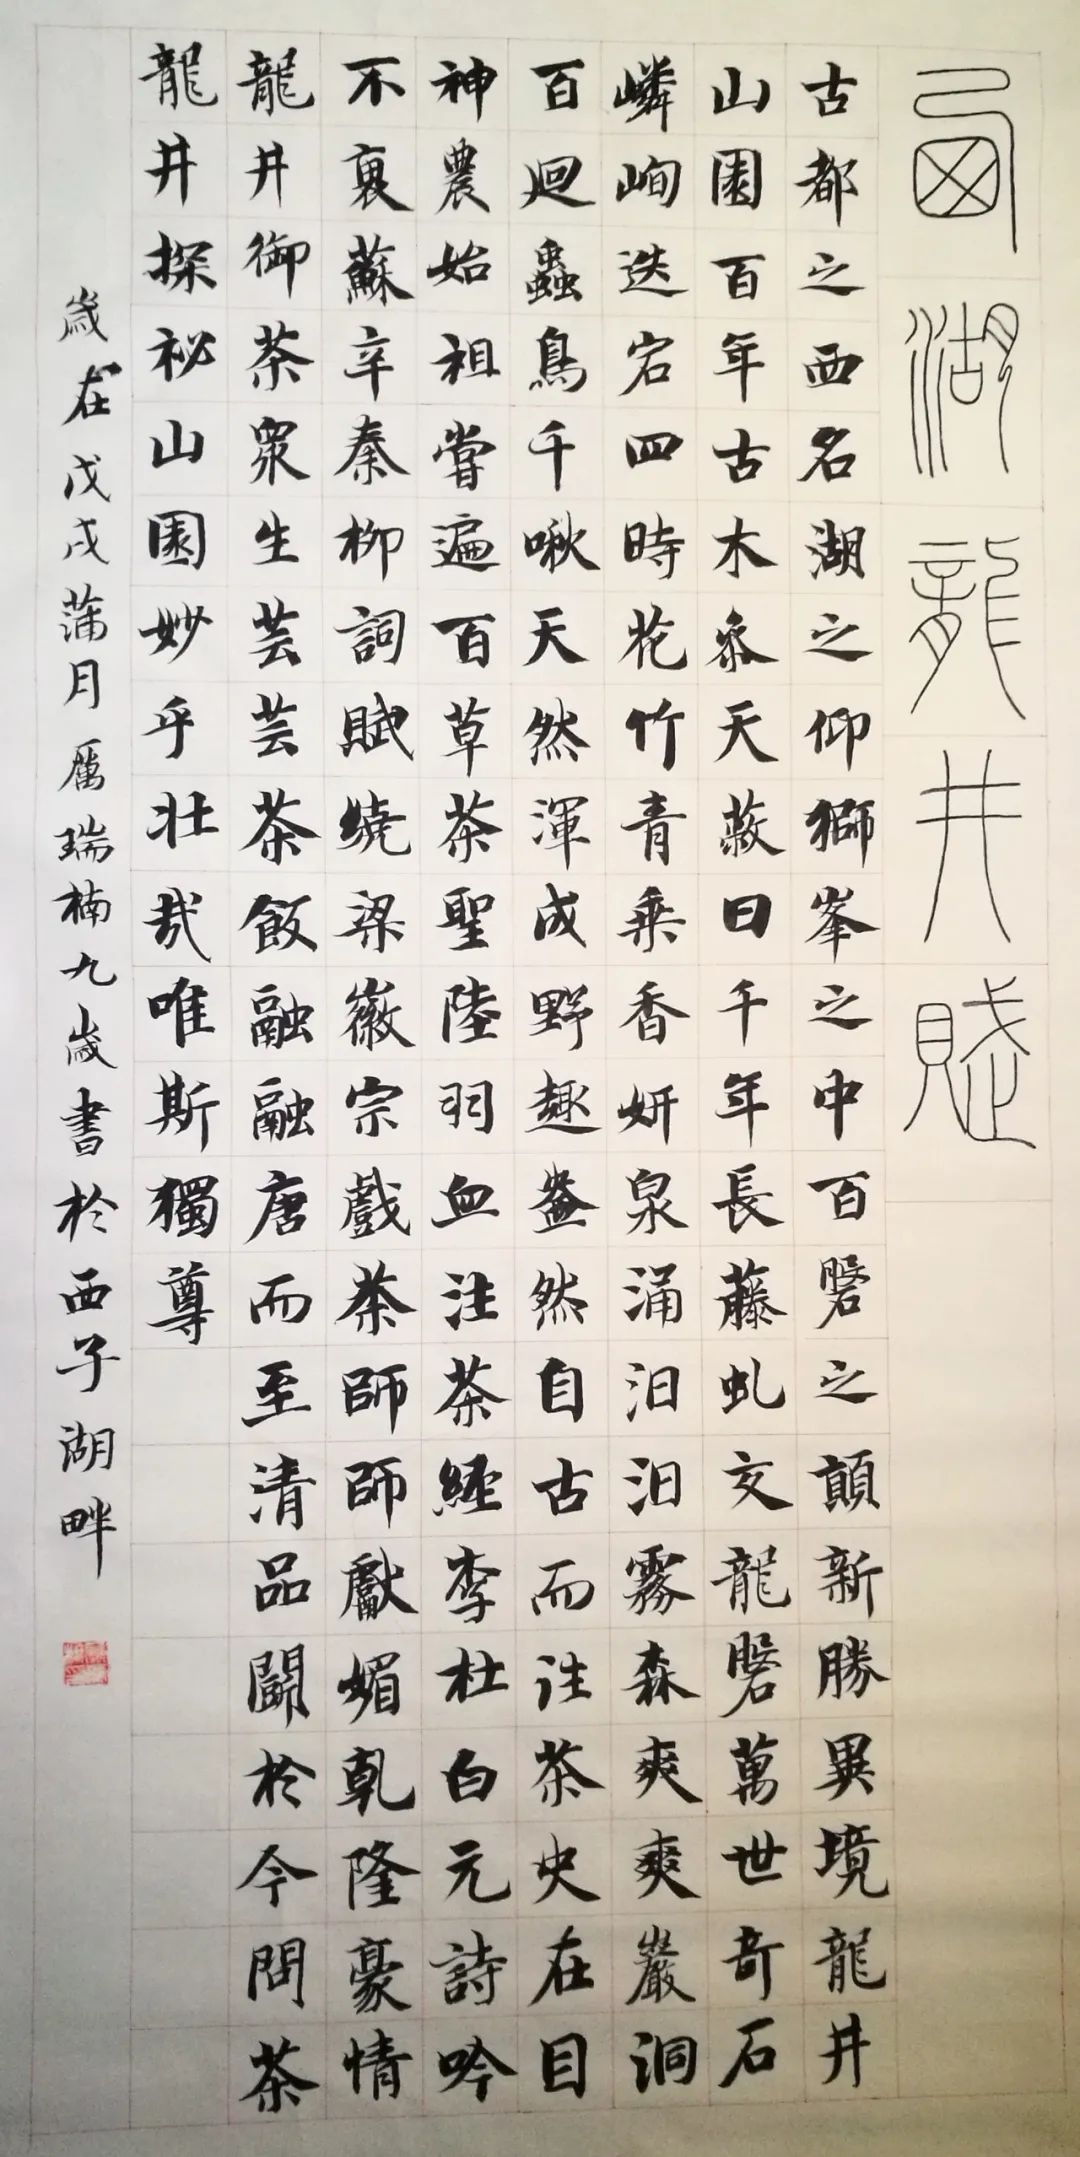 西湖龍井賦
古都之西名湖之仰獅峯之中百磐之顛新勝異境龍井
山園百年古木叅天蔽日千年長藤虬交龍磐萬世奇石
嶙峋迭宕四時花竹青乘香妍泉涌汩汩霧森爽爽巖洞
百迴蟲鳥千啾天然渾成野趣盎然自古而往茶史在目
神農始祖嘗遍百草茶聖陸羽血注茶經李杜白元詩吟
不裏蘇辛秦柳詞賦繞梁徽宗戲茶師師獻媚乾隆豪情
龍井御茶衆生芸芸茶飯融融唐而至清品鬪於今問茶
龍井探祕山園妙乎壯哉唯斯獨尊
歲在戊戌蒲月厲瑞楠九歲書於西子湖畔